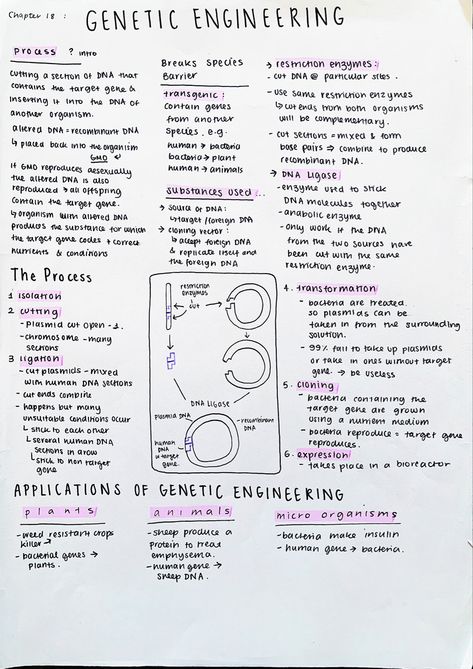 Chapter 18 :
GENETIC ENGINEERING
process ? intro
cutting a section of DNA that
contains the target gene &
inserting it into the DNA of
another organism.
altered DNA = recombinant DNA
↳ placed back into the organism
GMO
if GMO reproduces asexually
the altered DNA is also
reproduced → all offspring
contain the target gene.
↳ organism with altered DNA
produces the substance for which
the target gene codes + correct
nutrients & conditions
Breaks species
Barrier
transgenic:
contain genes
from another
species. e.g.
human → bacteria
bacteria → plant
human → animals
substances used...
→ source of DNA:
↳ target/foreign DNA
→ cloning vector:
↳ accept foreign DNA
& replicate itself and
the foreign DNA
→ restriction enzymes:
- cut DNA @ particular sites.
- use same restriction enzymes
↳ cut ends from both organisms
will be complementary.
- cut sections = mixed & form
base pairs ⇒ combine to produce
recombinant DNA.
→ DNA Ligase
- enzyme used to stick
DNA molecules together
- anabolic enzyme
- only work if the DNA
from the two sources have
been cut with the same
restriction enzyme.
The Process
1 isolation
2 cutting
- plasmid cut open - 1.
- chromosome - many
sections
3 ligation
- cut plasmids - mixed
with human DNA sections
- cut ends combine
- happens but many
unsuitable conditions occur
↳ stick to each other
↳ several human DNA
sections in a row
↳ stick to non target
gone
restriction
enzymes
cut
DNA LIGASE
plasmid DNA
- recombinant
DNA
human
DNA
w target
gene.
4. transformation
- bacteria are treated.
so plasmids can be
taken in from the surrounding
solution.
- 99% fail to take up plasmids
or take in ones without target
gene. → be useless
5. cloning
- bacteria containing the
target gene are grown
using a nutrient medium
- bacteria reproduce = target gene
reproduces.
6. expression
- takes place in a bioreactor
APPLICATIONS OF GENETIC ENGINEERING
plants
- weed resistant crops
killer
- bacterial genes →
plants.
animals
- sheep produce a
protein to treat
emphysema.
- human gene →
sheep DNA.
micro organisms
- bacteria make insulin
- human gene → bacteria.